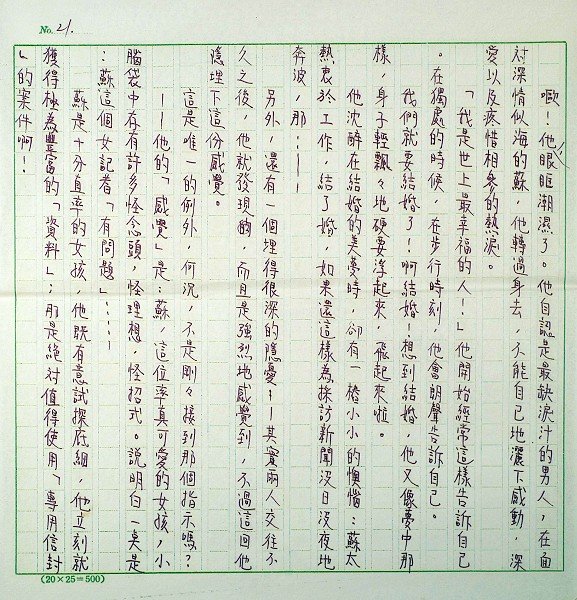 No. 21.
嗽！他眼眶潮濕了。他自認是最缺淚汁的男人，在面
對深情似海的蘇，他轉過身去，不能自已地灑下感動，深
愛以及疼惜相參的熱淚。
「我是世上最幸福的人！」他開始經常這樣告訴自己
。在獨處的時候，在步行時刻，他會朗聲告訴自己。
我們就要結婚了！啊結婚！想到結婚，他又像夢中那
樣，身子輕飄々地硬要浮起來，飛起來啦。
他沈醉在結婚的美夢時，卻有一樁小小的懊惱：蘇太
熱衷於工作，結了婚，如果還這樣為採訪新聞沒日沒夜地
奔波，那……
另外，還有一個埋得很深的隱憂——其實兩人交往不
久之後，他就發現的，而且是強烈地感覺到，不過這回他
隱埋下這份感覺。
這是唯一的例外，何況，不是剛々接到那個指示嗎？
——他的「感覺」是：蘇，這位率真可愛的女孩，小
腦袋中有有許多怪念頭，怪理想，怪招式。說明白一莫是
：蘇這個女記者「有問題」……
蘇是十分直率的女孩，他既有意試探底細，他立刻就
獲得極為豐富的「資料」；那是絕對值得使用「專用信封
」的案件啊！
(20×25=500)